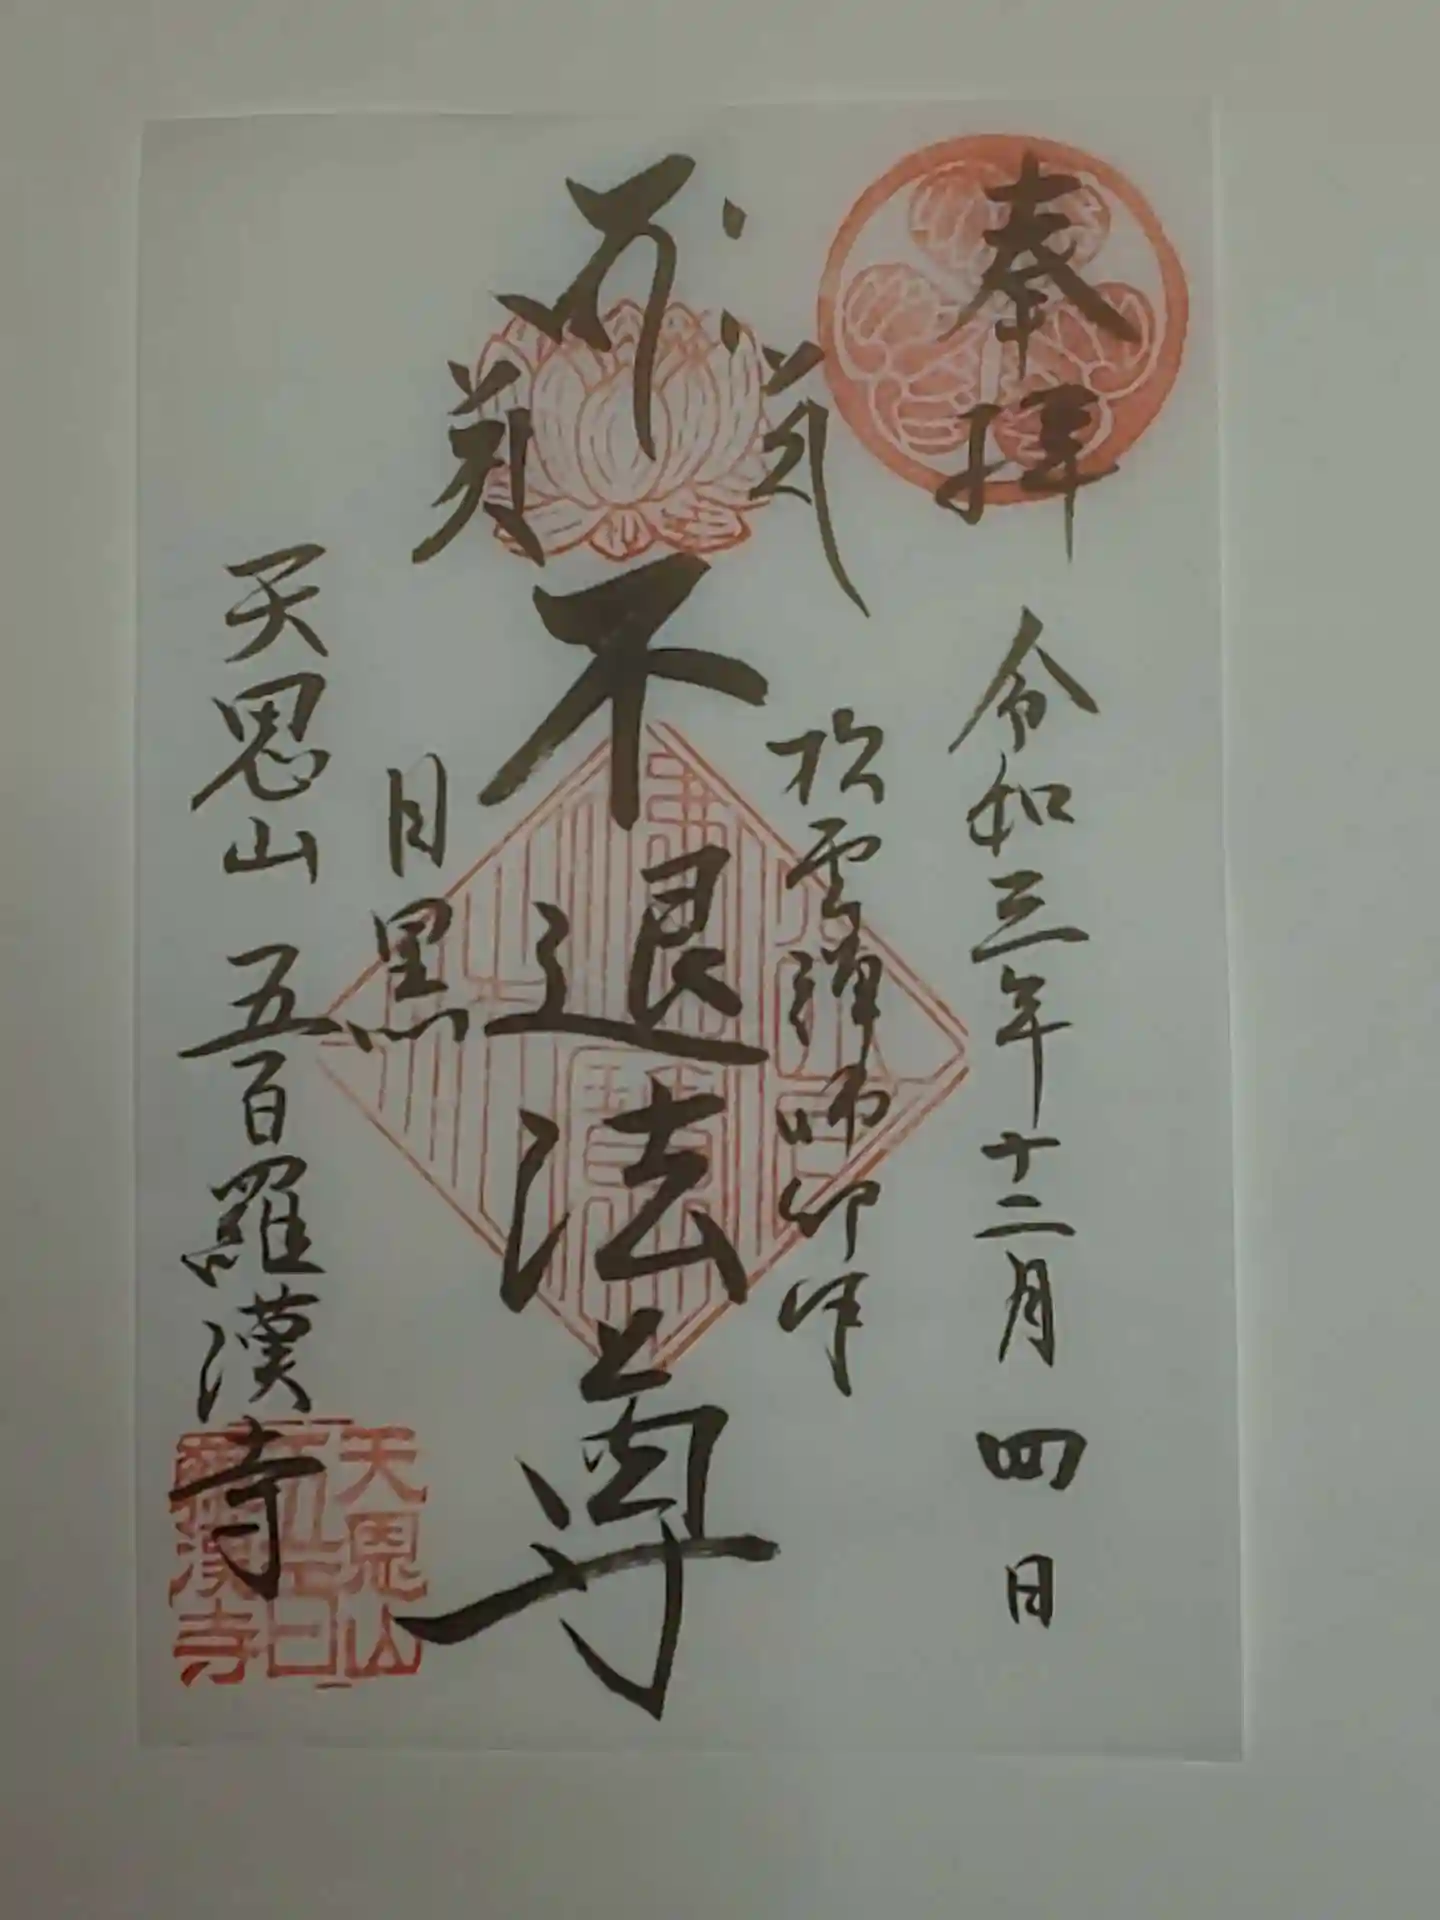 奉拝
令和三年十二月四日
松雲禅師御作
不退法尊
目黒
天恩山 五百羅漢寺
天恩山
五百
羅漢寺